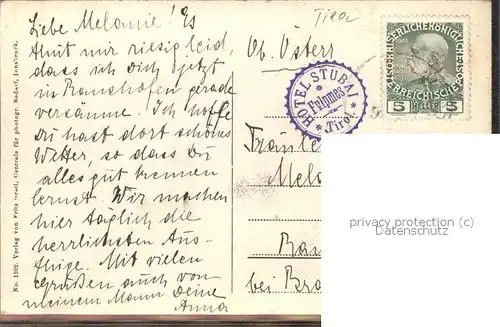 Liebe Melanie! Es
thut mir riesig leid,
dass ich dich jetzt
in Ranshofen gerade
versäume. Ich hoffe
Du hast dort schönes
Wetter, so dass Du
alles gut kennen
lernst. Wir machen
hier täglich die
herrlichsten Aus-
flüge. Mit vielen
Grüßen auch von
meinem Mann Deine
Anna
Tirol
Ob. Österr
Fräule
Mela
Ran
bei Bra
HOTEL STUBAI
Fulpmes
Tirol
KAISERLICHE KÖNIGLICHE
ÖSTERREICHISCHE POST
5 HELLER 5
privacy protection (c)
Datenschutz
No. 1392. Verlag von Fritz Gratl, Centrale für photogr. Bedarf, Innsbruck.